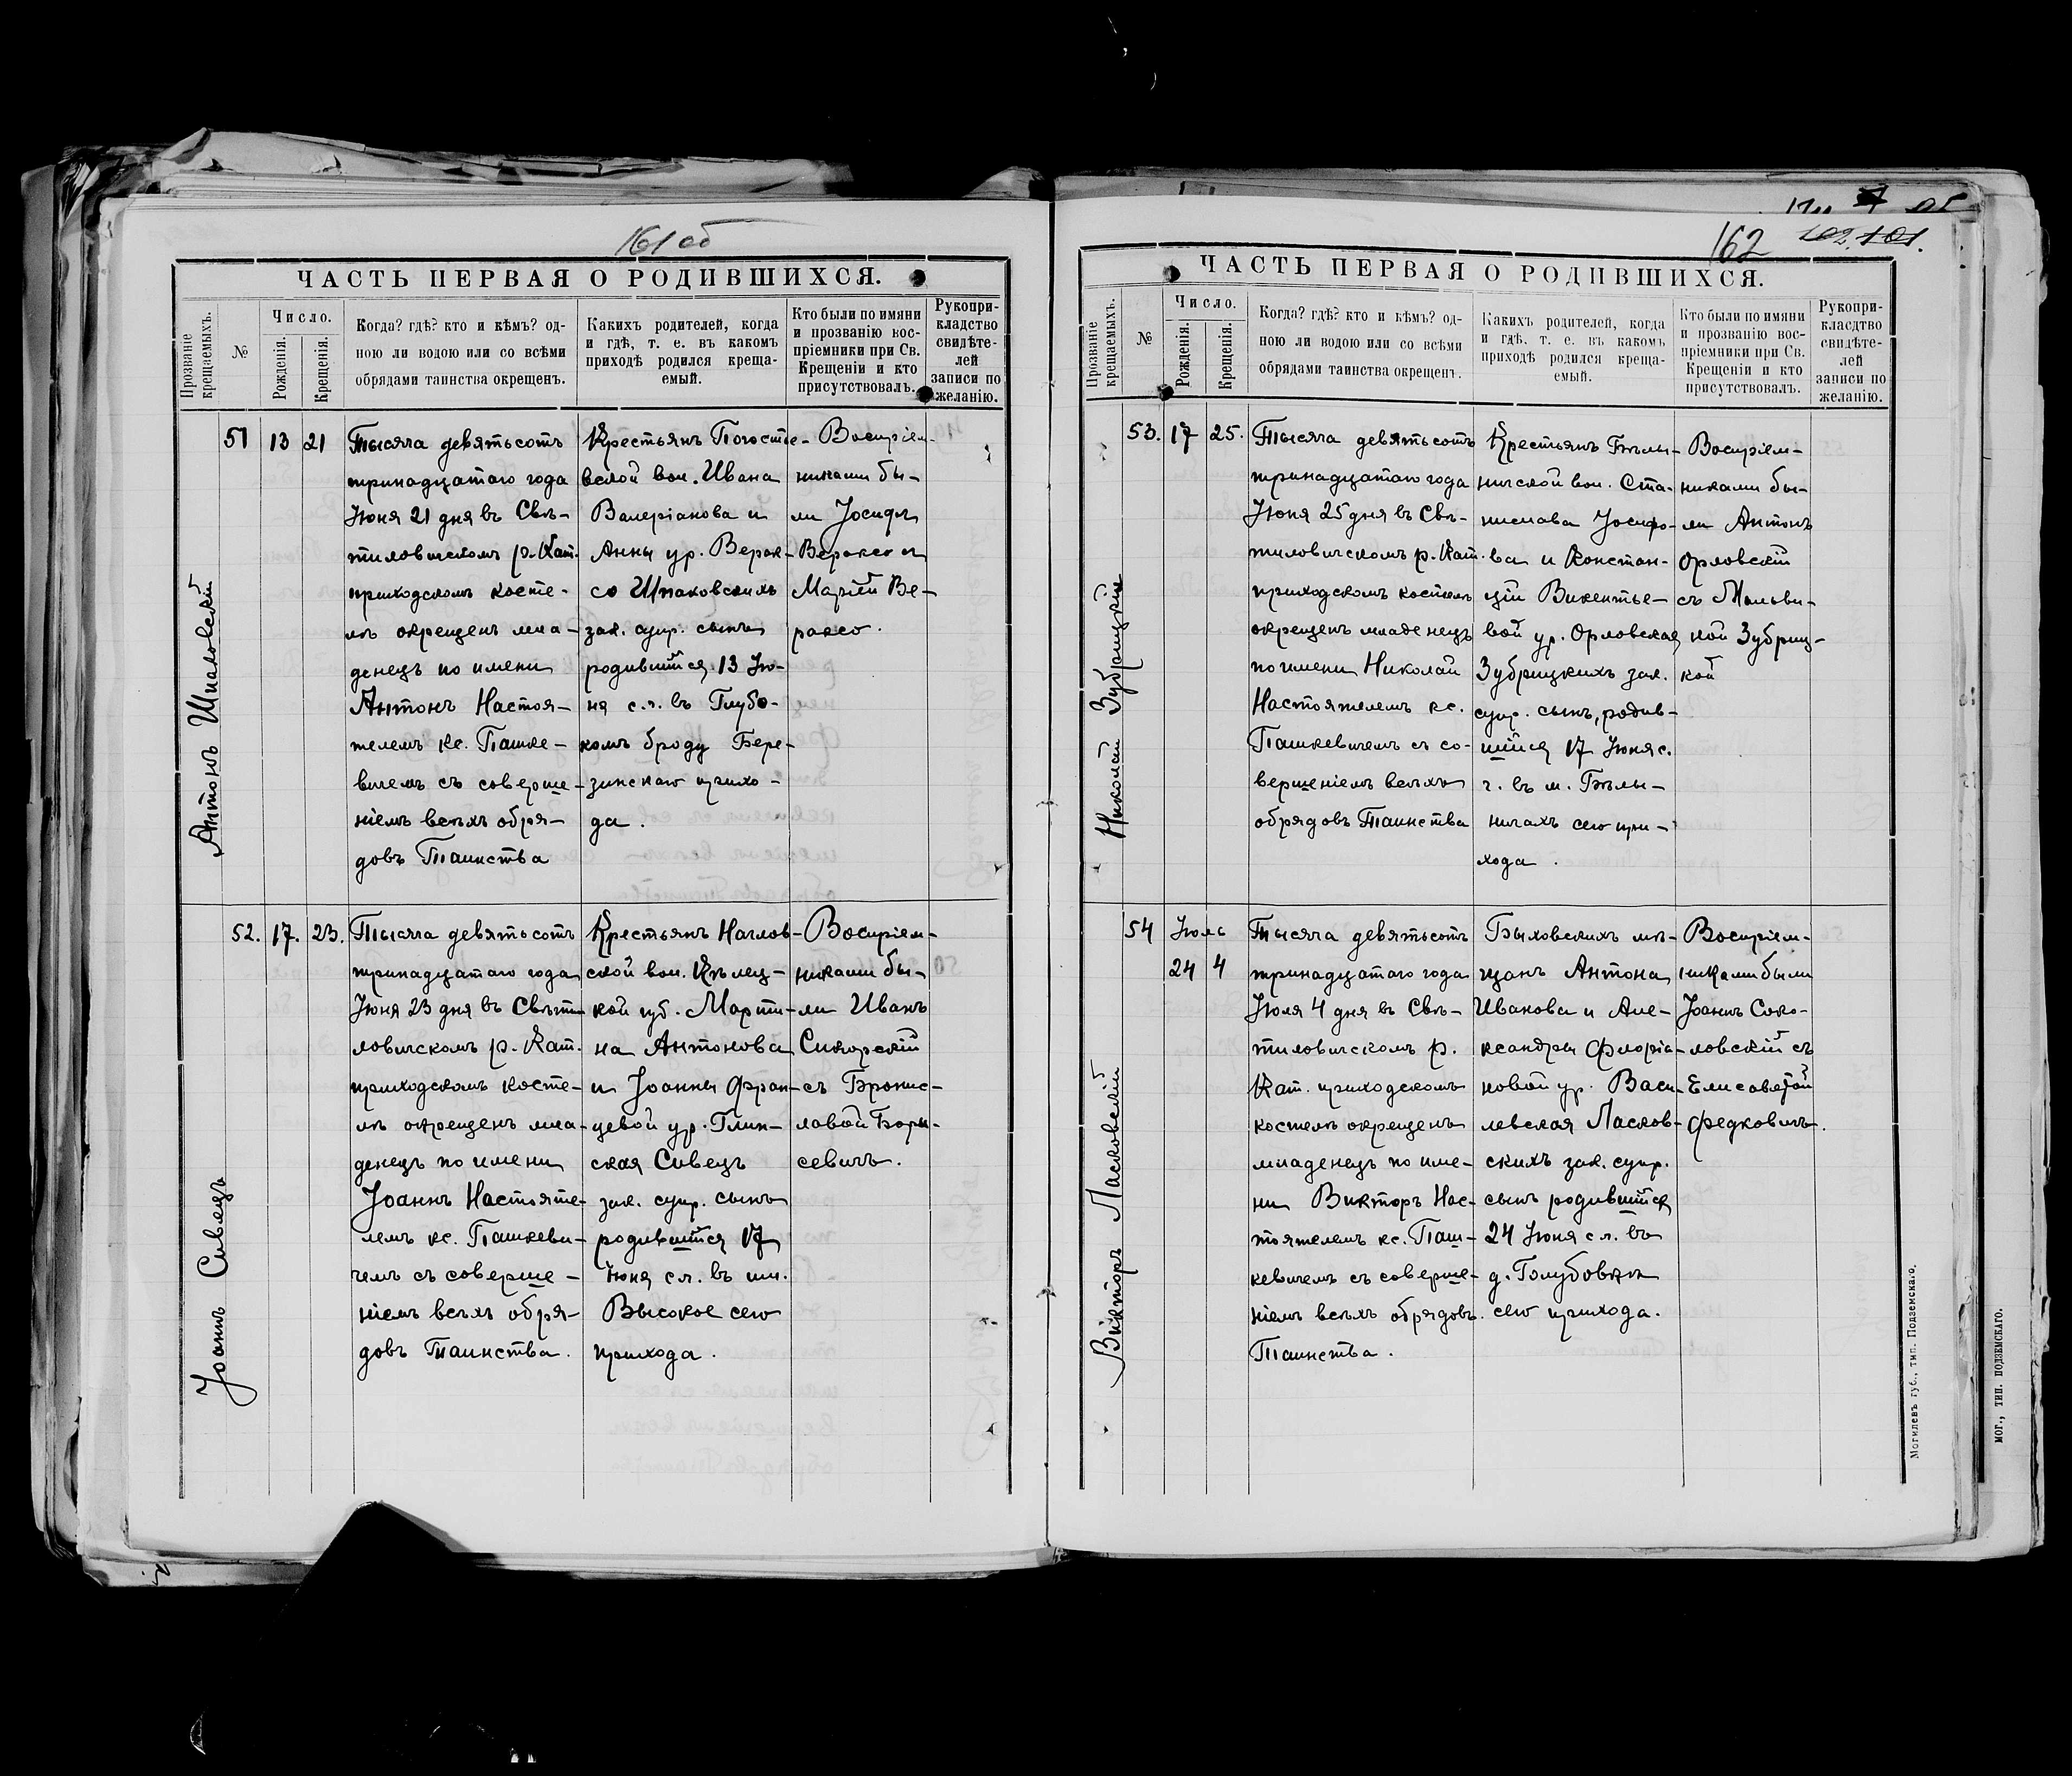 161 об
ЧАСТЬ ПЕРВАЯ О РОДИВШИХСЯ.
Прозваніе крещаемыхъ.
№
Число.
Рожденія.
Крещенія.
Когда? гдѣ? кто и кѣмъ? од-
ною ли водою или со всѣми
обрядами таинства окрещенъ.
Какихъ родителей, когда
и гдѣ, т. е. въ какомъ
приходѣ родился креща-
емый.
Кто были по имяни
и прозванію вос-
пріемники при Св.
Крещеніи и кто
присутствовалъ.
Рукопри-
кладство
свидѣте-
лей
записи по
желанію.
Антонъ Шпаковскій
51 13 21
Тысяча девятьсотъ
тринадцатаго года
Іюня 21 дня въ Свѣ-
тиловичскомъ р. Кат.
приходскомъ косте-
лѣ окрещенъ мла-
денецъ по имени
Антонъ Настоя-
телемъ кс. Пашке-
вичемъ съ соверше-
ніемъ всѣхъ обря-
довъ Таинства
Крестьянъ Погосте-
вской вол. Ивана
Валеріанова и
Анны ур. Верак-
со Шпаковскихъ
зак. супр. сынъ
родившійся 13 Ію-
ня с. г. въ Глубо-
комъ броду Бере-
зинскаго прихо-
да.
Воспріем-
никами бы-
ли Іосифъ
Вераксо и
Марія Ве-
раксо.
Іоаннъ Сивецъ
52. 17. 23.
Тысяча девятьсотъ
тринадцатаго года
Іюня 23 дня въ Свѣти-
ловичскомъ р. Кат.
приходскомъ косте-
лѣ окрещенъ мла-
денецъ по имени
Іоаннъ Настояте-
лемъ кс. Пашкеви-
чемъ съ соверше-
ніемъ всѣхъ обря-
довъ Таинства.
Крестьянъ Наглов-
ской вол. Кѣлец-
кой губ. Марти-
на Антонова
и Іоанны Фран-
цевой ур. Глин-
ская Сивецъ
зак. супр. сынъ
родившійся 17
Іюня с.г. въ им.
Высокое сего
прихода.
Воспріем-
никами бы-
ли Иванъ
Сикорскій
съ Бронис-
лавой Бори-
севичъ.
162
102. 101.
ЧАСТЬ ПЕРВАЯ О РОДИВШИХСЯ.
Прозваніе крещаемыхъ.
№
Число.
Рожденія.
Крещенія.
Когда? гдѣ? кто и кѣмъ? од-
ною ли водою или со всѣми
обрядами таинства окрещенъ.
Какихъ родителей, когда
и гдѣ, т. е. въ какомъ
приходѣ родился креща-
емый.
Кто были по имяни
и прозванію вос-
пріемники при Св.
Крещеніи и кто
присутствовалъ.
Рукопри-
класдтво
свидѣте-
лей
записи по
желанію.
Николай Зубрицкій
53. 17 25.
Тысяча девятьсотъ
тринадцатаго года
Іюня 25 дня въ Свѣ-
тиловичскомъ р. Кат.
приходскомъ костелѣ
окрещенъ младенецъ
по имени Николай
Настоятелемъ кс.
Пашкевичемъ съ со-
вершеніемъ всѣхъ
обрядовъ Таинства
Крестьянъ Бѣлы-
ничской вол. Ста-
нислава Іосифо-
ва и Констан-
ціи Викентье-
вой ур. Орловская
Зубрицкихъ зак.
супр. сынъ, родив-
шійся 17 Іюня с.
г. въ м. Бѣлы-
ничахъ сего при-
хода.
Воспріем-
никами бы-
ли Антонъ
Орловскій
съ Мальви-
ной Зубриц-
кой
Викторъ Ласковскій
54 Іюль
24 4
Тысяча девятьсотъ
тринадцатаго года
Іюля 4 дня въ Свѣ-
тиловичскомъ р.
Кат. приходскомъ
костелѣ окрещенъ
младенецъ по име-
ни Викторъ Нас-
тоятелемъ кс. Паш-
кевичемъ съ соверше-
ніемъ всѣхъ обрядовъ
Таинства.
Быховскихъ мѣ-
щанъ Антона
Иванова и Але-
ксандры Флоріа-
новой ур. Васи-
левская Ласков-
скихъ зак. супр.
сынъ родившійся
24 Іюня с.г. въ
д. Голубовкѣ
сего прихода.
Воспріем-
никами были
Іоаннъ Соко-
ловскій съ
Елисаветой
Федковичъ.
Могилевъ губ., тип. Подземскаго.
МОГ., ТИП. ПОДЗЕМСКАГО.